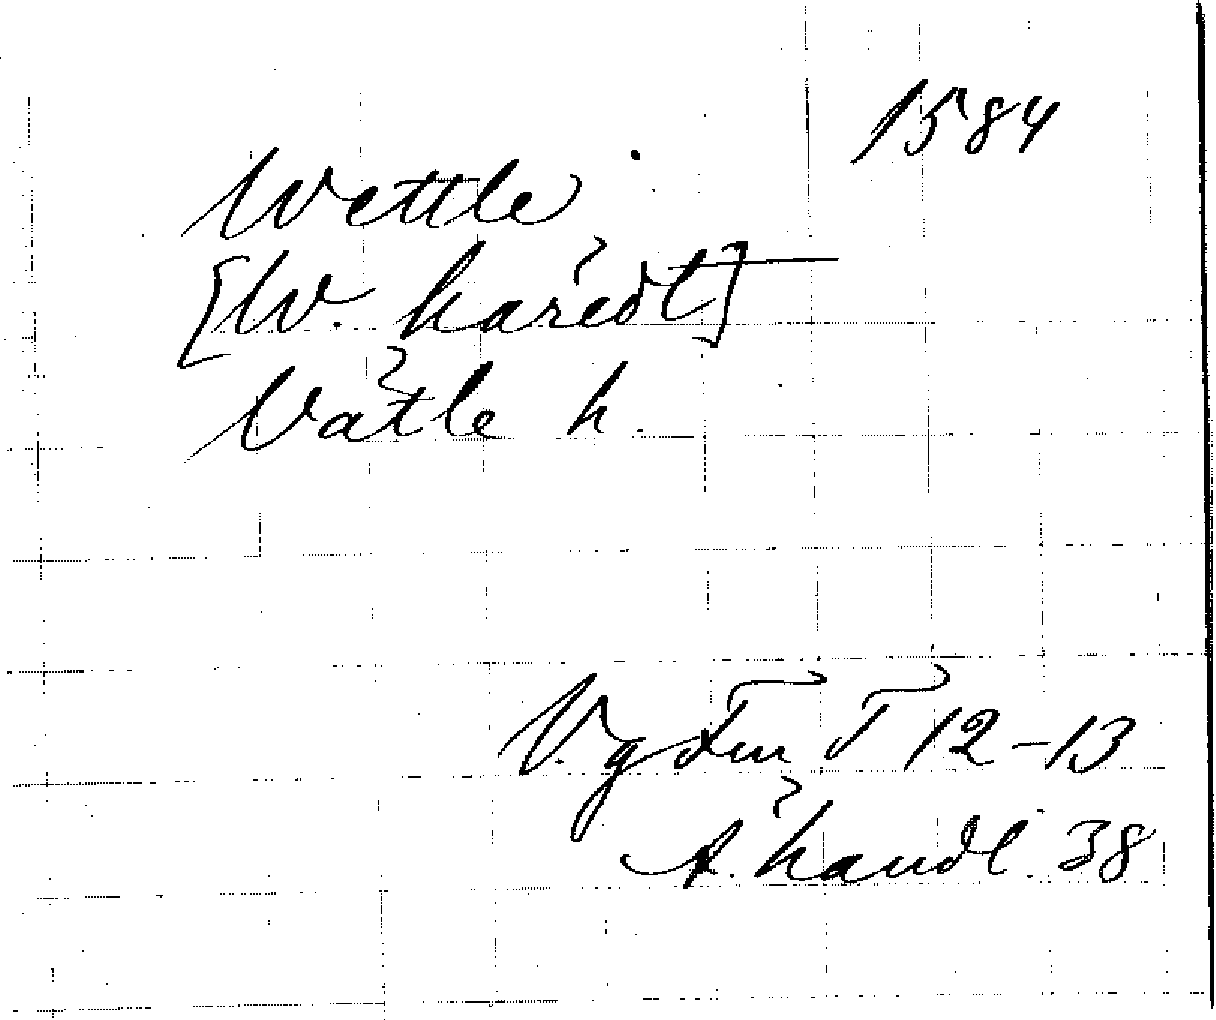 1584
Wettle
[W. häredt]
Vätle h.
V.g Fm T 12-13
Ä. handl. 38